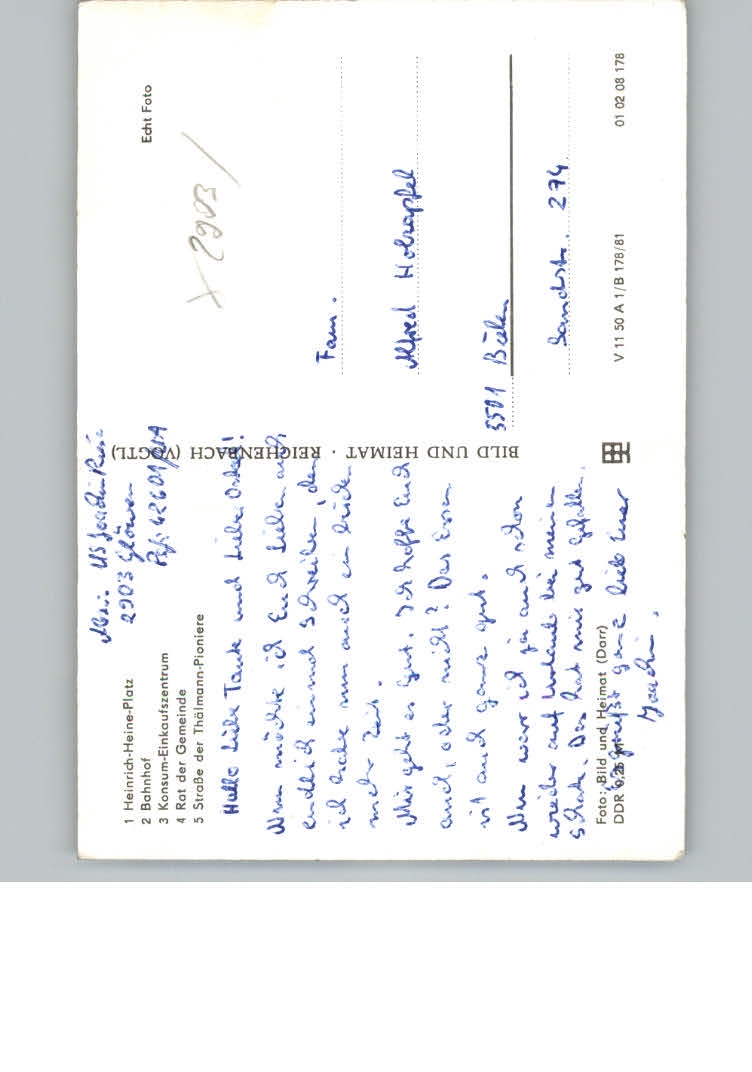 1 Heinrich-Heine-Platz
2 Bahnhof
3 Konsum-Einkaufszentrum
4 Rat der Gemeinde
5 Straße der Thälmann-Pioniere
2903 Glöwen
Hallo liebe Tante und lieber Onkel!
Nun möchte ich Euch Lieben auch
endlich einmal schreiben, denn
ich habe nun auch ein bißchen
mehr Zeit.
Mir geht es gut. Ich hoffe Euch
auch, oder nicht? Das Essen
ist auch ganz gut.
Nun war ich ja auch schon
wieder auf Urlaub bei meinem
Schatz. Das hat mir gut gefallen.
ganz lieb Euer
Joachim.
Foto: Bild und Heimat (Darr)
DDR 0,25 M
BILD UND HEIMAT · REICHENBACH (VOGTL)
Echt Foto
X 2903 /
Fam.
Alfred Holzapfel
Sandstr. 274
V 11 50 A 1/B 178/81
01 02 08 178